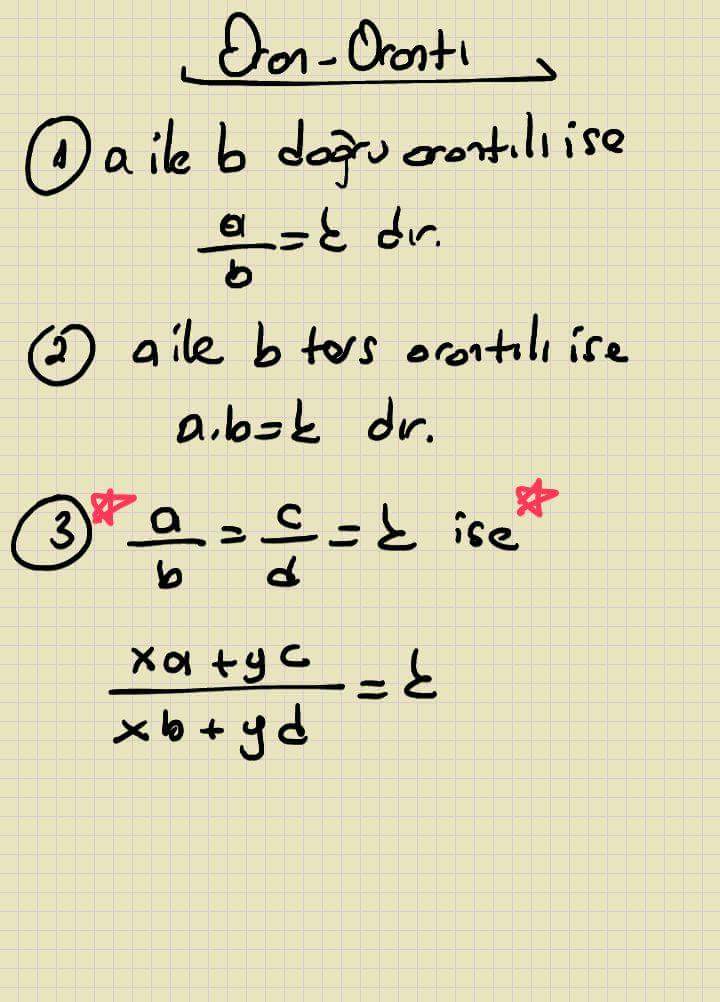 Oran-Orantı
1 a ile b doğru orantılı ise
a/b = k dır.
2 a ile b ters orantılı ise
a.b=k dır.
3 a/b = c/d = k ise
xa+yc/xb+yd = k